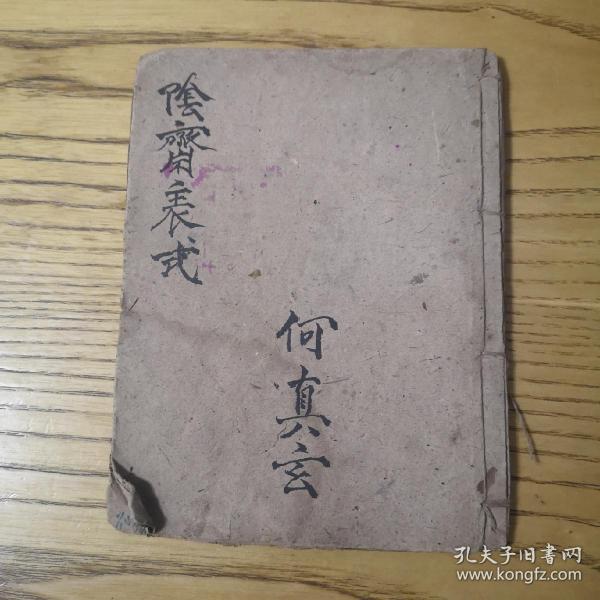 陰齋表式
何真玄
孔夫子旧書网
www.kongfz.com